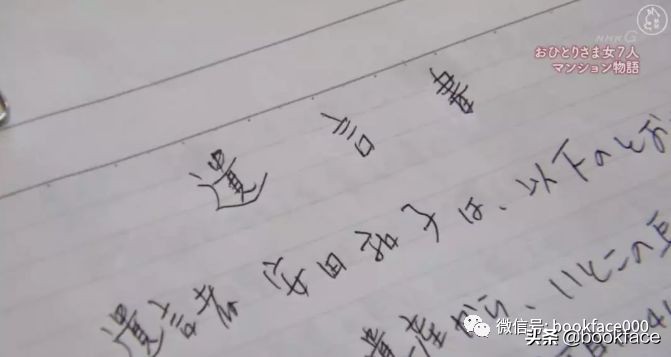 NHK G
おひとりさま女7人
マンション物語
遺言書
遺言者 安田和子は、以下のとお
遺産から、いとこの
微信号: bookface000
头条 @bookface